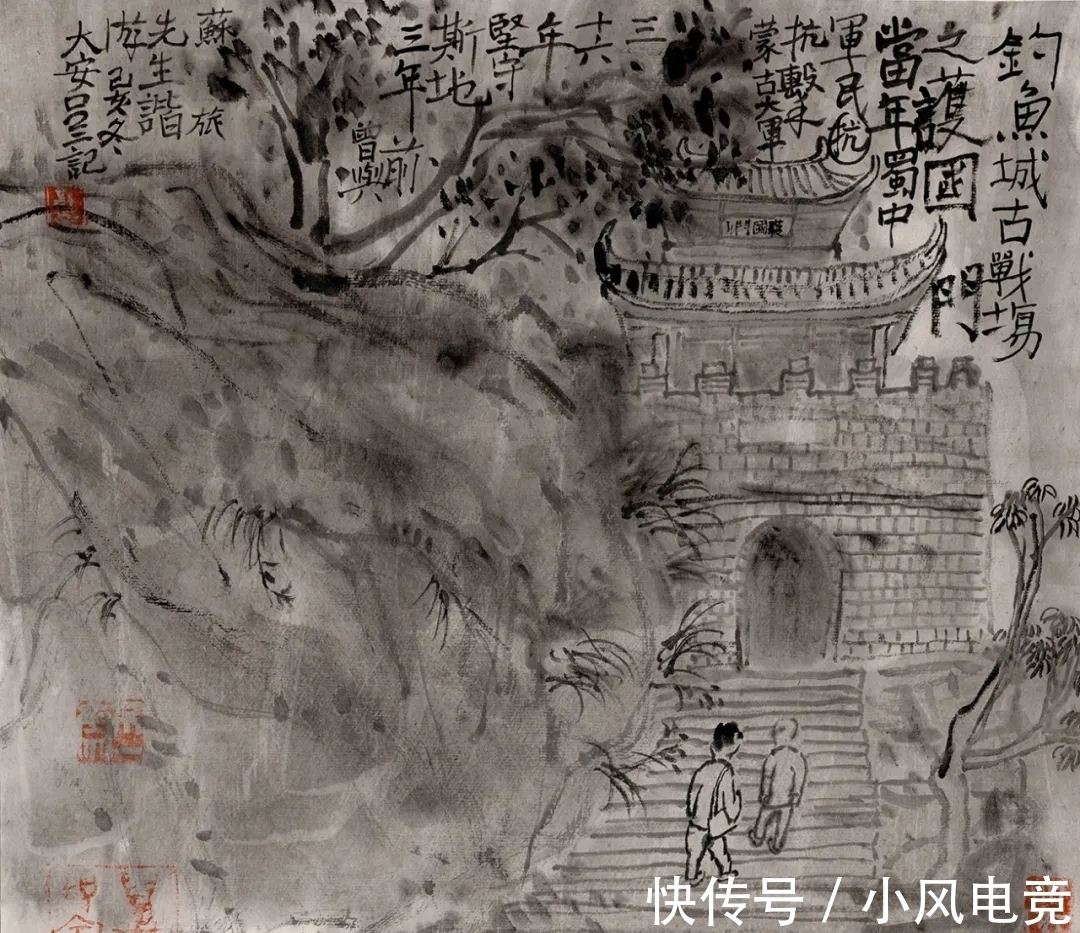 釣魚城古戰場
之護國門
當年蜀中
軍民抗
抗擊
蒙古大軍
三
十六
年
堅守
斯地
三年
前
曾與
蘇旅
先生諧
游己亥冬
大安呂三記
護國門
快传号 / 小风电竞